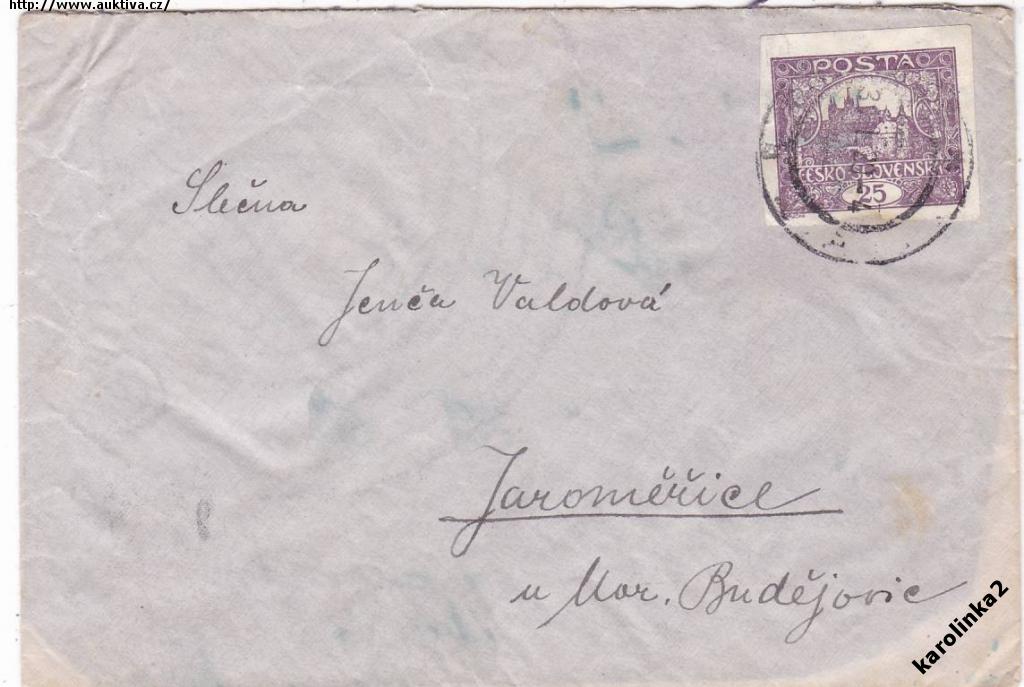 http://www.auktiva.cz/
POSTA
ČESKO-SLOVENSKÁ
25
Slečna
Jenča Valdová
Jaroměřice
u Mor. Budějovic
karolinka2